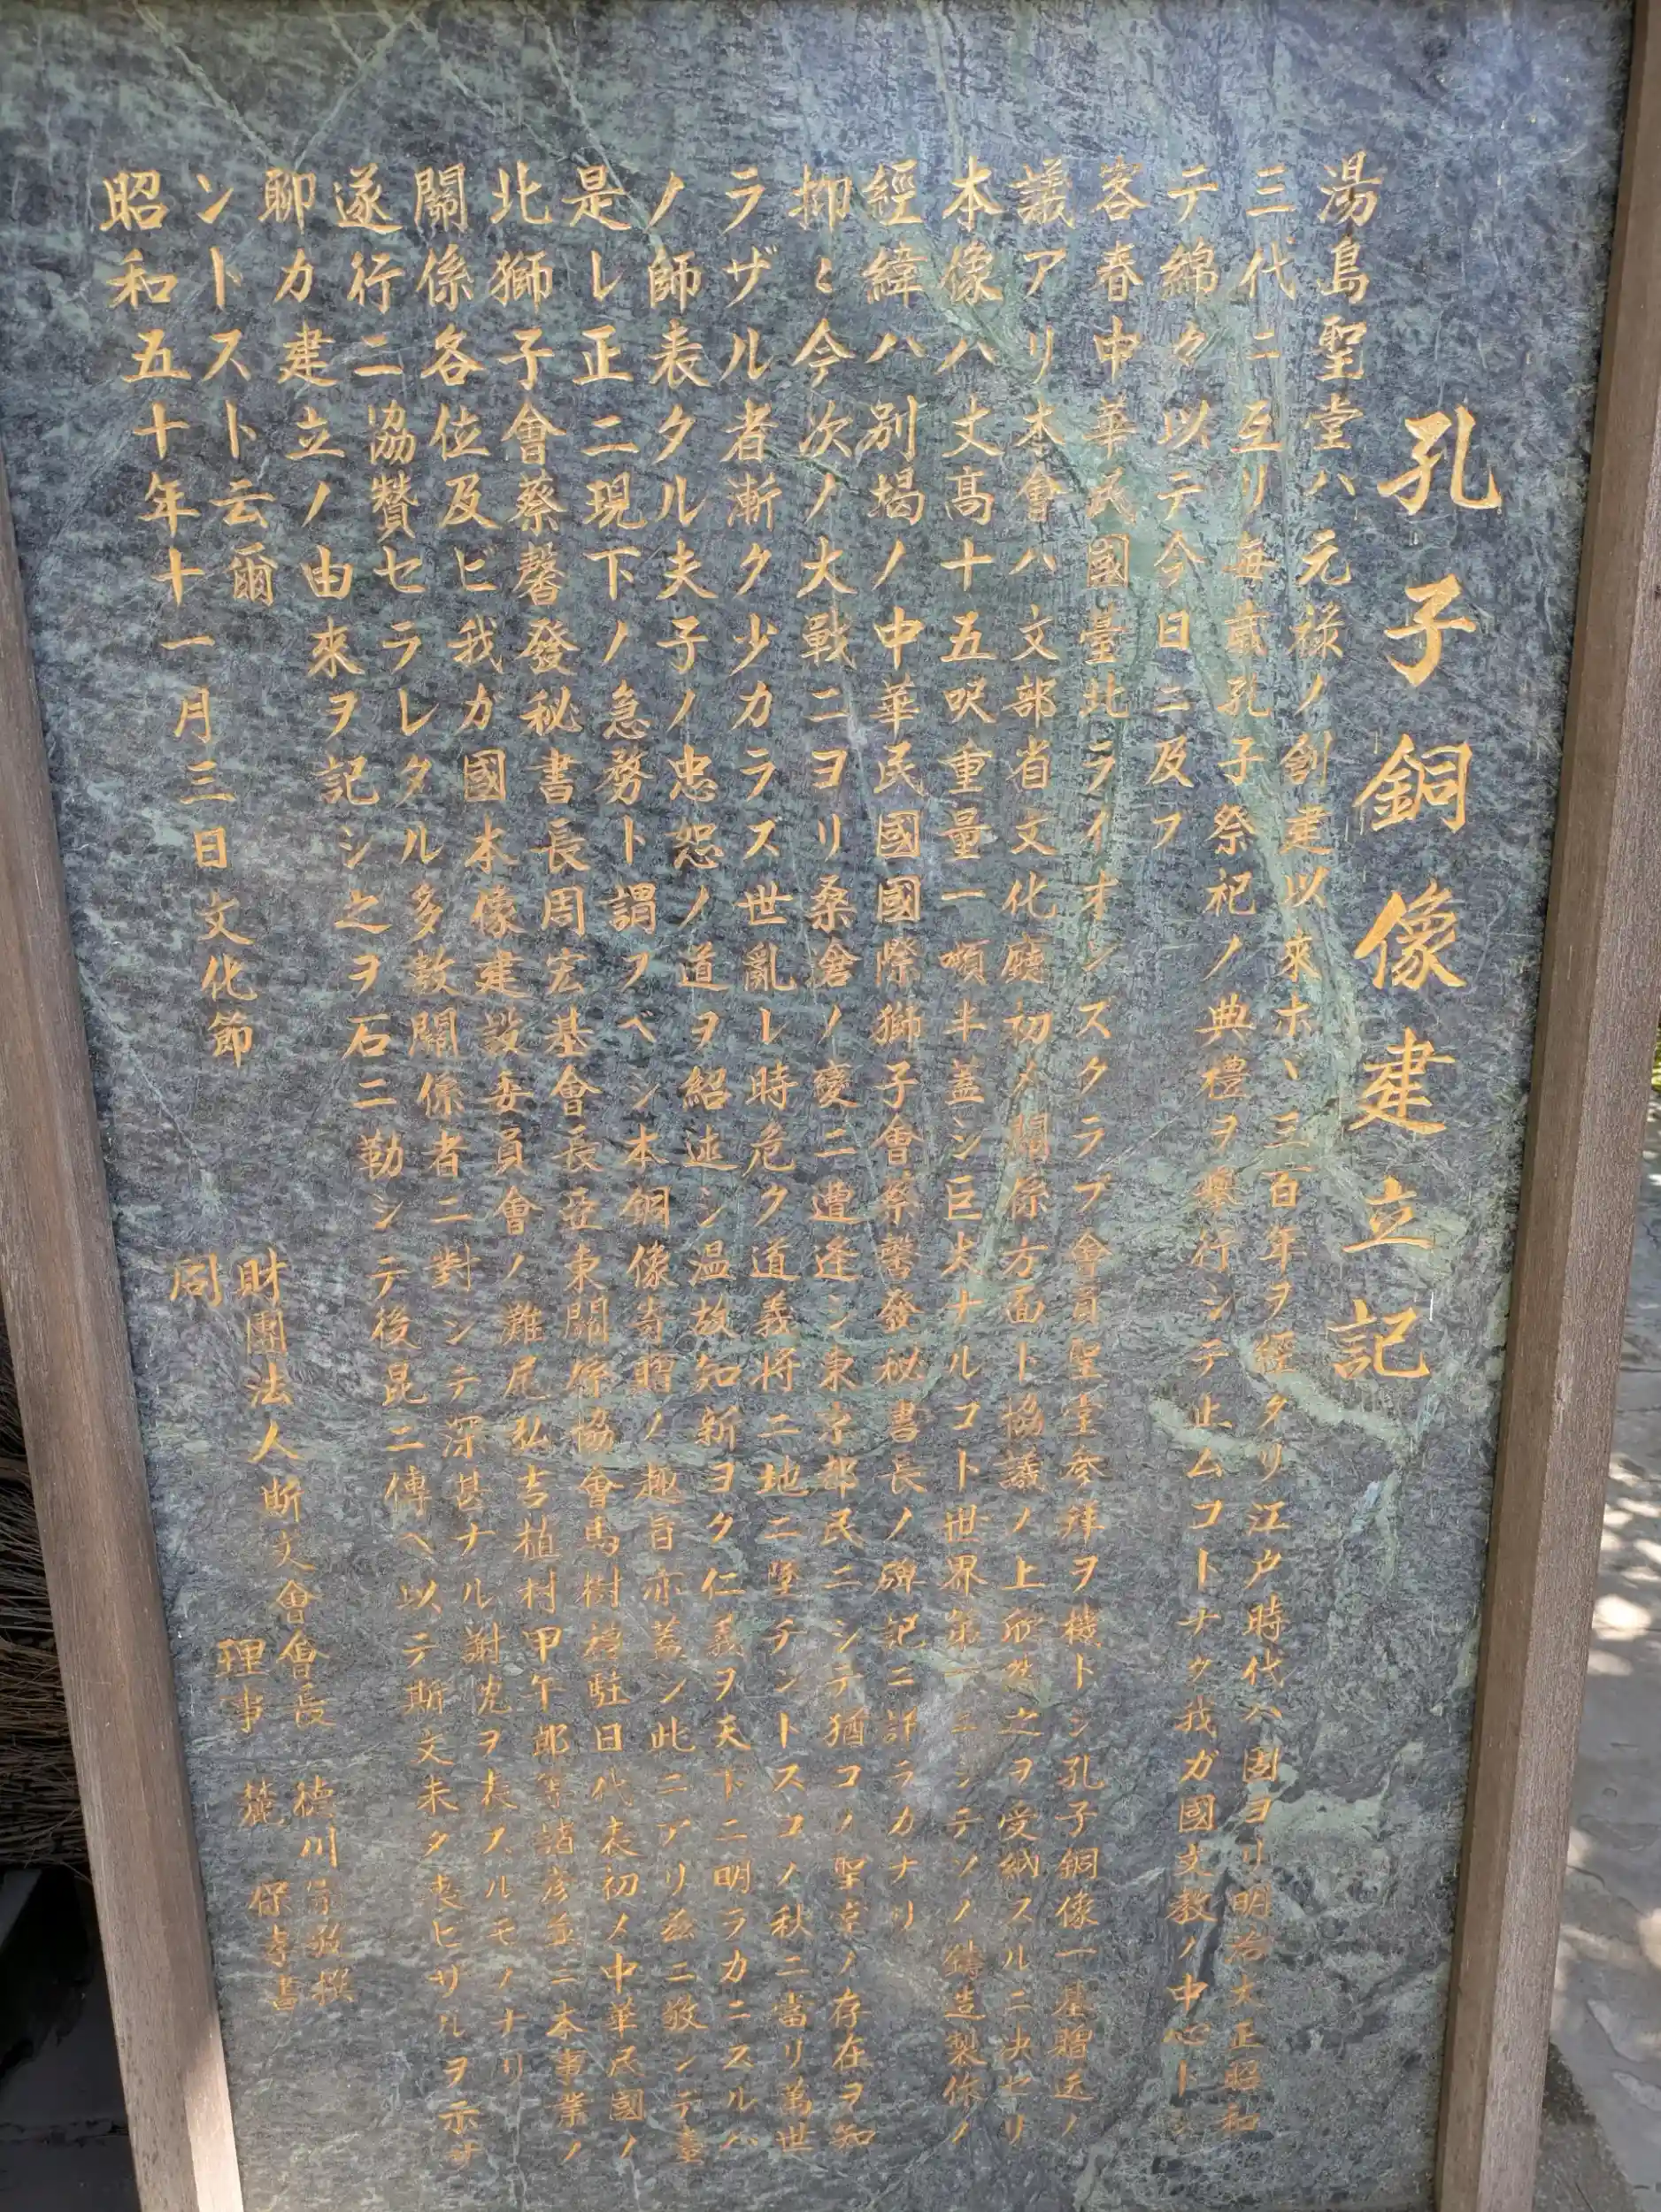 孔子銅像建立記
湯島聖堂ハ元禄ノ創建以來ホヾ三百年ヲ經タリ江戸時代ハ固ヨリ明治大正昭和
三代ニ亙リ毎歳孔子祭祀ノ典禮ヲ擧行シテ止ムコトナク我ガ國文教ノ中心トシ
テ綿々以テ今日ニ及フ
客春中華民國臺北ライオンズクラブ會員聖堂参拜ヲ機トシ孔子銅像一基贈送ノ
議アリ本會ハ文部省文化廳初メ關係方面ト協議ノ上欣然之ヲ受納スルニ決セリ
本像ハ丈高十五呎重量一噸半蓋シ巨大ナルコト世界第一ニシテソノ鑄造製作ノ
經緯ハ別掲ノ中華民國國際獅子會蔡馨發秘書長ノ碑記ニ詳ラカナリ
抑〻今次ノ大戰ニヨリ桑滄ノ變ニ遭逢シ東京都民ニシテ猶コノ聖堂ノ存在ヲ知
ラザル者漸ク少カラス世亂レ時危ク道義将ニ地ニ墜チントスコノ秋ニ當リ萬世
ノ師表タル夫子ノ忠恕ノ道ヲ紹述シ温故知新ヨク仁義ヲ天下ニ明ラカニスルハ
是レ正ニ現下ノ急務ト謂フベシ本銅像寄贈ノ趣旨亦蓋シ此ニアリ茲ニ敬シテ臺
北獅子會蔡馨發秘書長周宏基會長亞東關係協會馬樹禮駐日代表初メ中華民國ノ
關係各位及ビ我ガ國本像建設委員會ノ灘尾弘吉植村甲午郎等諸彦並ニ本事業ノ
遂行ニ協贊セラレタル多数關係者ニ對シテ深甚ナル謝意ヲ表スルモノナリ
聊カ建立ノ由來ヲ記シ之ヲ石ニ勒シテ後昆ニ傳ヘ以テ斯文未タ喪ヒザルヲ示サ
ントスト云爾
昭和五十年十一月三日文化節
財團法人斯文會會長　德川宗敬撰
同　理事　麓　保孝書